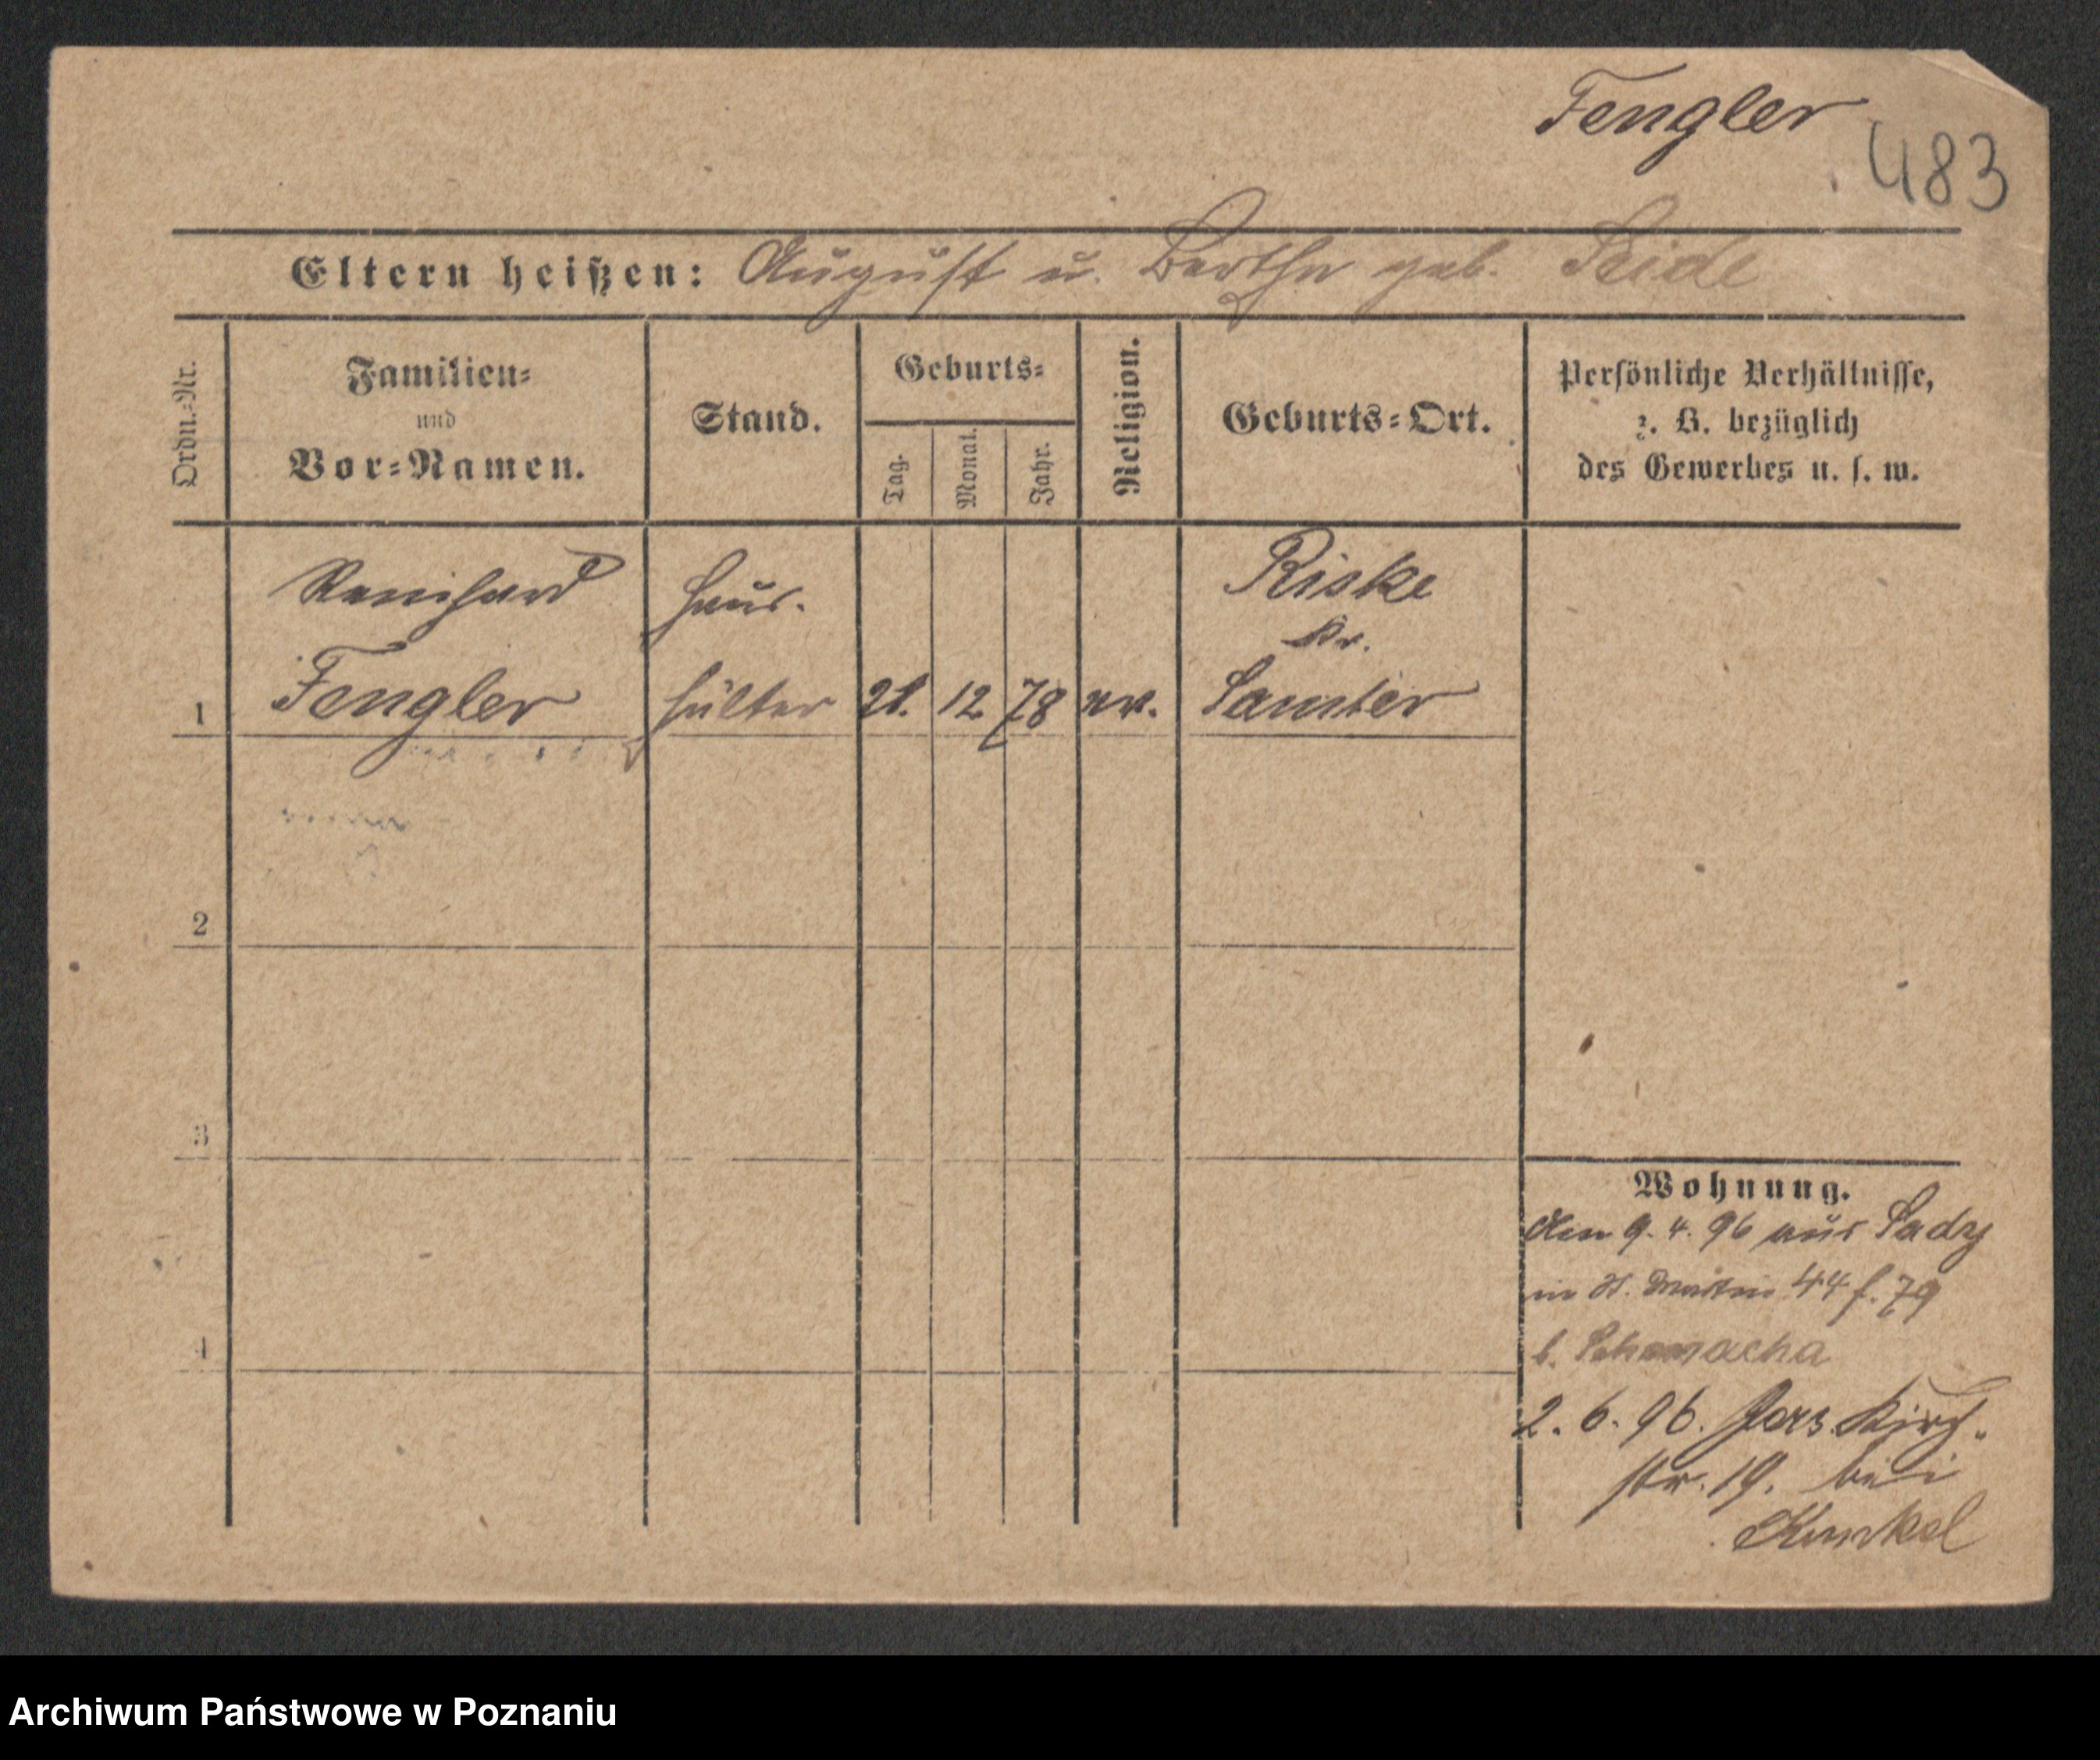 Fengler
483
Eltern heißen: August u. Bertha geb. Seide
Ordn.-Nr.
Familien- und Vor-Namen.
Stand.
Geburts-
Tag.
Monat.
Jahr.
Religion.
Geburts-Ort.
Persönliche Verhältnisse,
z. B. bezüglich
des Gewerbes u. s. w.
Reinhard
Haus-
Riske
Kr.
1
Fengler
hälter
21.
12
78
ev.
Samter
2
3
4
Wohnung.
Den 9. 4. 96 aus Sady
in St. Martin 44 f. 79
b.
2. 6. 96. Jers. Kirch-
str. 19. bei
Kunkel
Archiwum Państwowe w Poznaniu